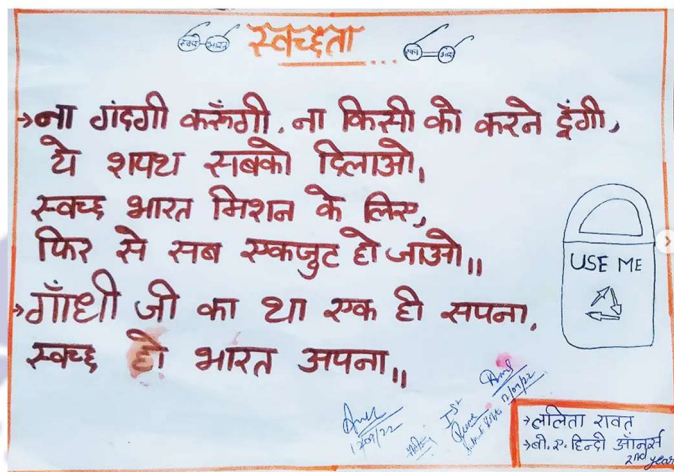 स्वच्छ भारत स्वच्छता
→ना गंदगी करूँगी, ना किसी को करने दूंगी,
ये शपथ सबको दिलाओ,
स्वच्छ भारत मिशन के लिए,
फिर से सब एकजुट हो जाओ।।
→गाँधी जी का था एक ही सपना,
स्वच्छ हो भारत अपना।।
USE ME
12/09/22
12/09/22
→ललिता रावत
→बी.ए. हिन्दी ऑनर्स
2nd year